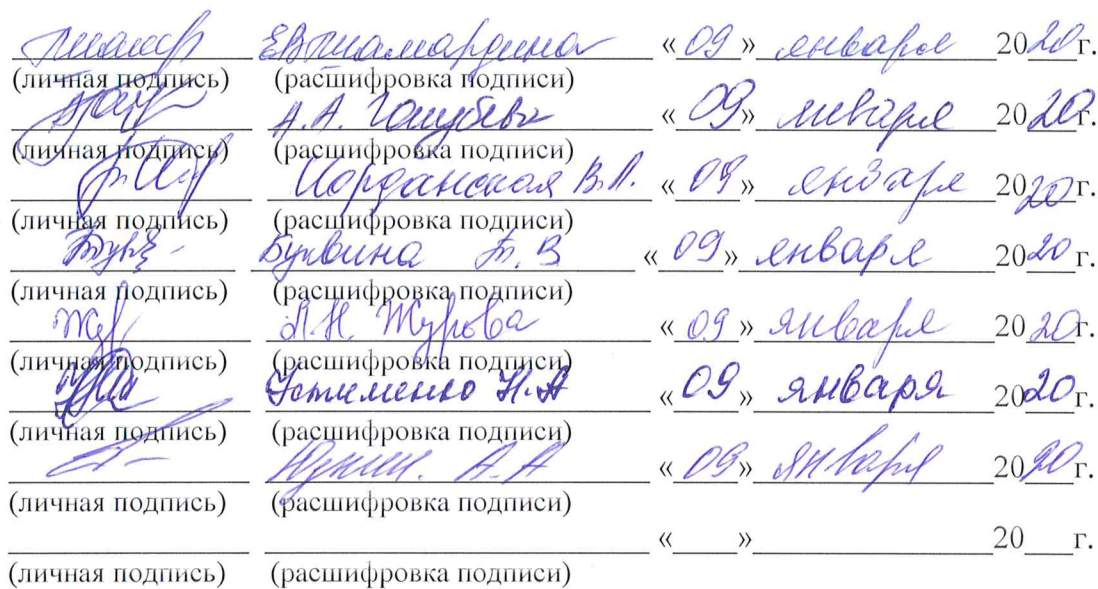 Е.В. Тиамардина «09» января 2020г.
(личная подпись) (расшифровка подписи)
А.А. Голубева «09» января 2020г.
(личная подпись) (расшифровка подписи)
Иорданская В.Л. «09» января 2020
(личная подпись) (расшифровка подписи)
Т.В «09» января 2020г.
(личная подпись) (расшифровка подписи)
Л.Н. Журова «09» января 2020г.
(личная подпись) (расшифровка подписи)
Устименко Н.А «09» января 2020г.
(личная подпись) (расшифровка подписи)
А.А «09» января 2020г.
(личная подпись) (расшифровка подписи)
«___»____________20___г.
(личная подпись) (расшифровка подписи)